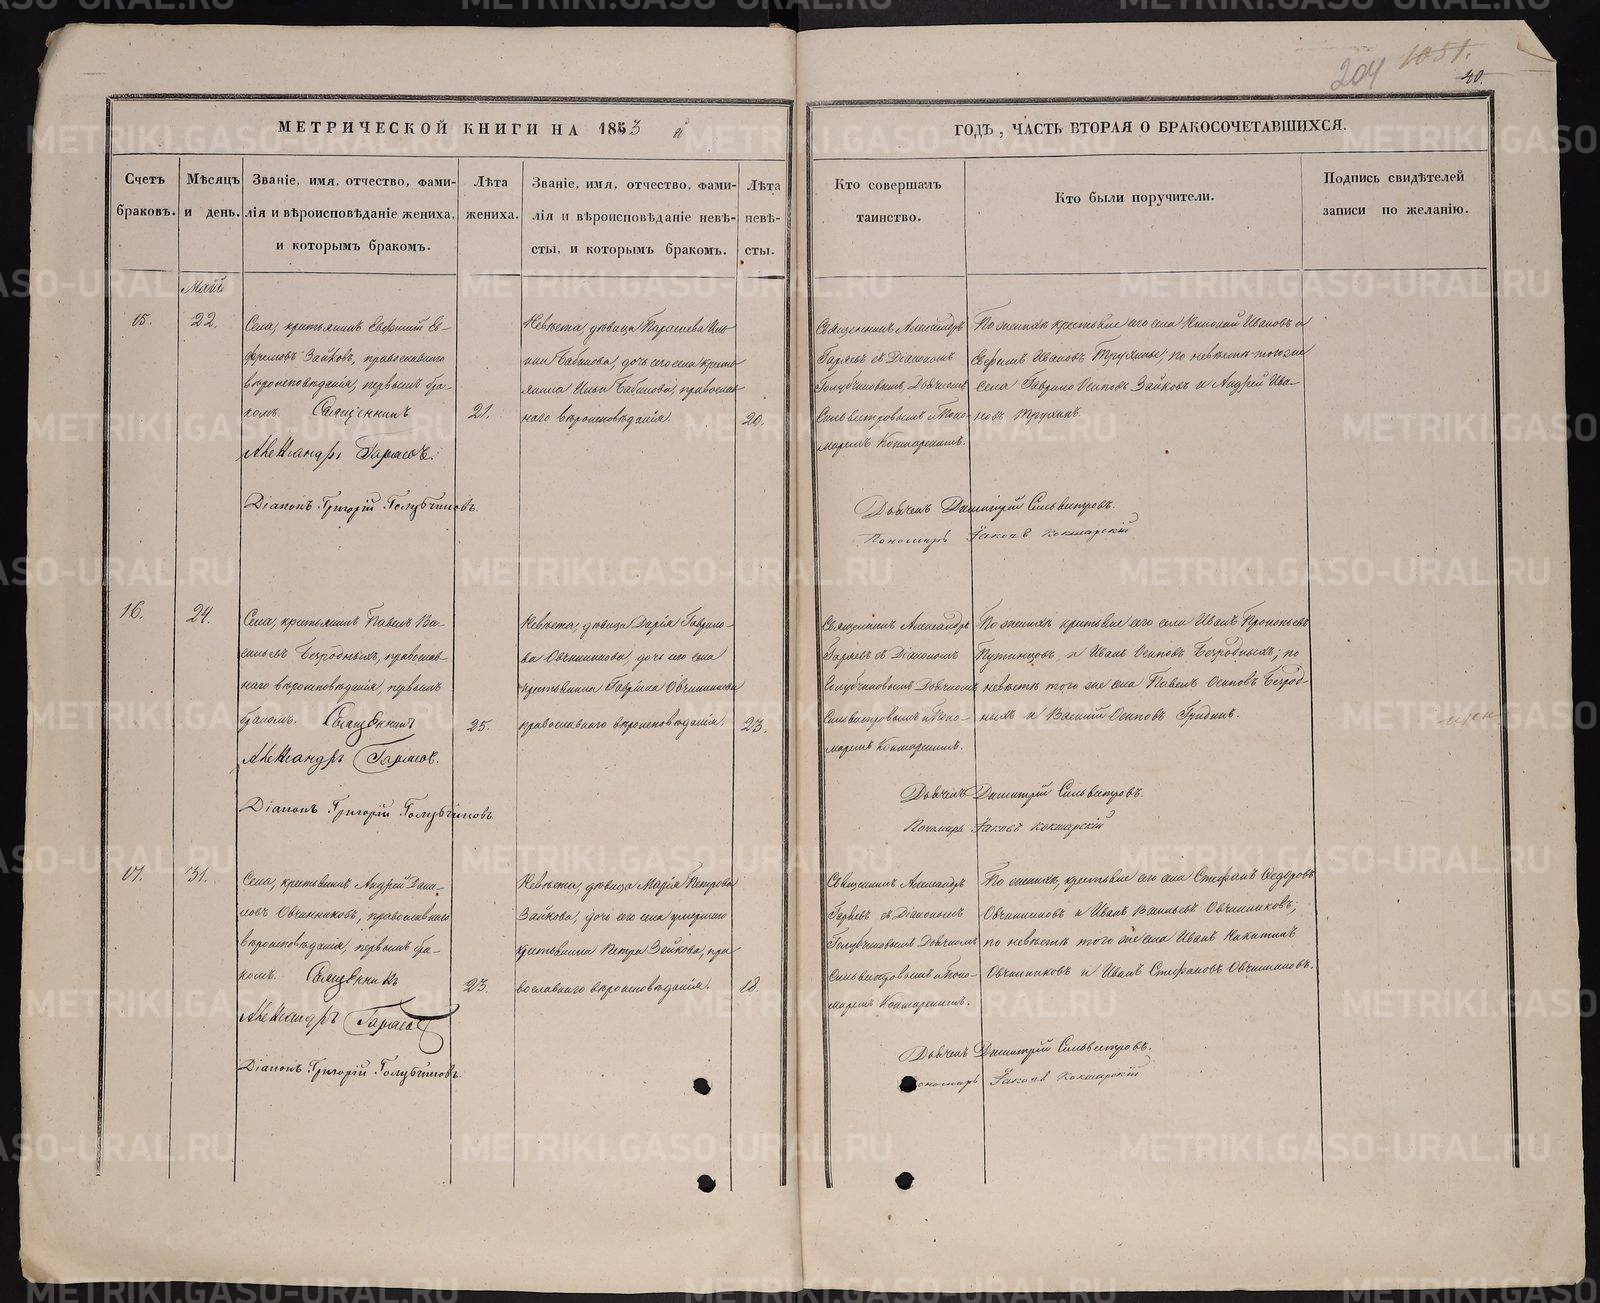 204 1051.
40.
МЕТРИЧЕСКОЙ КНИГИ НА 1853 й
ГОДЪ, ЧАСТЬ ВТОРАЯ О БРАКОСОЧЕТАВШИХСЯ.
Счетъ браковъ.
Мѣсяцъ и день.
Званіе, имя, отчество, фами-
лія и вѣроисповѣданіе жениха,
и которымъ бракомъ.
Лѣта
жениха.
Званіе, имя, отчество, фами-
лія и вѣроисповѣданіе невѣ-
сты, и которымъ бракомъ.
Лѣта
невѣ-
сты.
Кто совершалъ
таинство.
Кто были поручители.
Подпись свидѣтелей
записи по желанію.
Май
15.
22.
Села, крестьянинъ Евфимій Ев-
фремовъ Зайковъ, православнаго
вѣроисповѣданія, первымъ бра-
комъ. Священникъ
Александръ
Діаконъ Григорій Голубчиковъ.
21.
Невѣста, дѣвица Параскева Иль-
ина Бабинова, дочь сего села кресть-
янина Ильи Бабинова, православ-
наго вѣроисповѣданія.
20.
Священникъ Александръ
съ Діакономъ
Голубчиковымъ, Дьячкомъ
Сильвестровымъ и Поно-
маремъ Кокшарскимъ.
По женихѣ крестьяне сего села Николай Ивановъ и
Ефимъ Ивановъ Трухины; по невѣстѣ того же
села Гаврило Осиповъ Зайковъ и Андрей Ива-
новъ Трухинъ.
Дьячекъ Димитрій Сильвестровъ.
Пономарь Іаковъ Кокшарскій
16.
24.
Села, крестьянинъ Павелъ Ва-
сильевъ Безродныхъ, православ-
наго вѣроисповѣданія, первымъ
бракомъ. Священникъ
Александръ
Діаконъ Григорій Голубчиковъ.
25.
Невѣста, дѣвица Дарія Гаврило-
ва Овчинникова, дочь сего села
крестьянина Гаврила Овчинникова
православнаго вѣроисповѣданія.
23.
Священникъ Александръ
съ Діакономъ
Голубчиковымъ Дьячкомъ
Сильвестровымъ и Поно-
маремъ Кокшарскимъ.
По женихѣ крестьяне сего села Иванъ Прокопьевъ
и Иванъ Осиповъ Безродныхъ; по
невѣстѣ того же села Павелъ Осиповъ Безрод-
ныхъ и Василій Осиповъ
Дьячекъ Димитрій Сильвестровъ.
Пономарь Іаковъ Кокшарскій
17.
31.
Села, крестьянинъ Андрей Дани-
ловъ Овчинниковъ, православнаго
вѣроисповѣданія, первымъ бра-
комъ. Священникъ
Александръ
Діаконъ Григорій Голубчиковъ.
23.
Невѣста, дѣвица Марія Петрова
Зайкова, дочь сего села умершаго
крестьянина Петра Зайкова, пра-
вославнаго вѣроисповѣданія.
18.
Священникъ Александръ
съ Діакономъ
Голубчиковымъ Дьячкомъ
Сильвестровымъ и Поно-
маремъ Кокшарскимъ.
По женихѣ, крестьяне сего села Стефанъ Федоровъ
Овчинниковъ и Иванъ Васильевъ Овчинниковъ;
по невѣстѣ того же села Иванъ Никитинъ
Овчинниковъ и Иванъ Стефановъ Овчинниковъ.
Дьячекъ Димитрій Сильвестровъ.
Пономарь Іаковъ Кокшарскій
METRIKI.GASO-URAL.RU